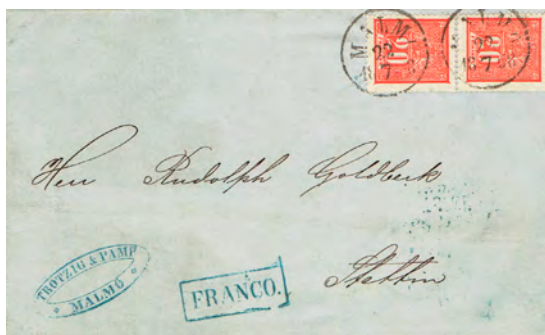 MALM
22
7
22
7
Herr Rudolph Goldbeck
Stettin
TROTZIG & PAMP
MALMÖ
FRANCO.